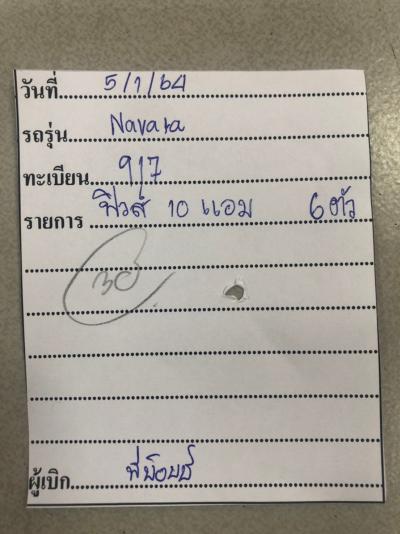 วันที่ 5/1/64
รถรุ่น Navara
ทะเบียน 917
รายการ ฟิวส์ 10 แอม 6 ตัว
ผู้เบิก